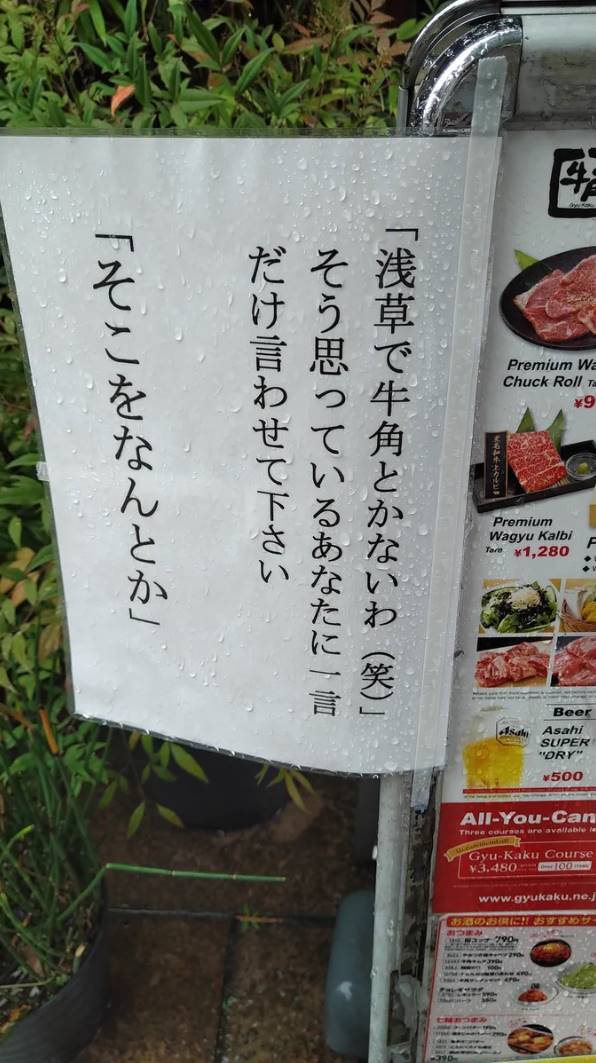 「浅草で牛角とかないわ（笑）」
そう思っているあなたに一言
だけ言わせて下さい
「そこをなんとか」
牛角
Premium Wa
Chuck Roll Ta
¥9
Premium
Wagyu Kalbi
Tare ¥1,280
P
Beer
Asahi
Asahi
SUPER
"DRY"
¥500
All-You-Can
Three courses are available
Gyu-Kaku Course
¥3,480
100
www.gyukaku.ne.j
お酒のお供に!! おすすめサ
おつまみ
790円
チョレギサラダ
七輪おつまみ